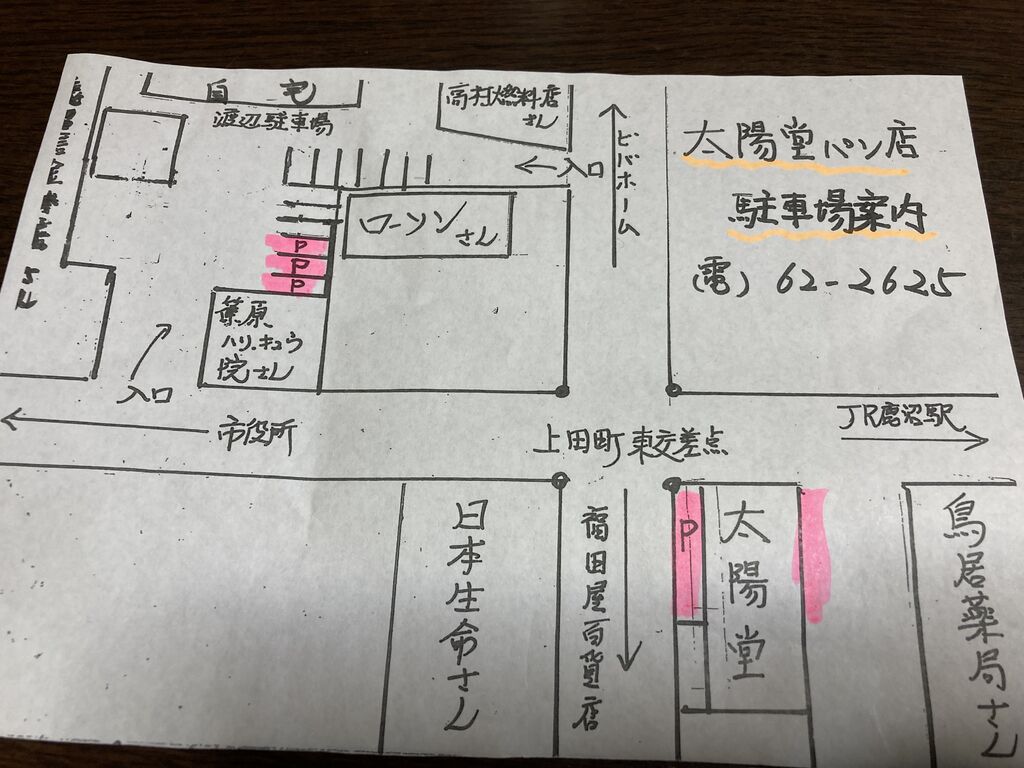 自宅
渡辺駐車場
高村燃料店
さん
入口
ビバホーム
太陽堂パン店
駐車場案内
(電) 62-2625
ローソンさん
P
P
P
葉原
ハリ・キュウ
院さん
入口
市役所
上田町 東交差点
JR鹿沼駅
日本生命さん
福田屋百貨店
P
太陽堂
鳥居薬局さん